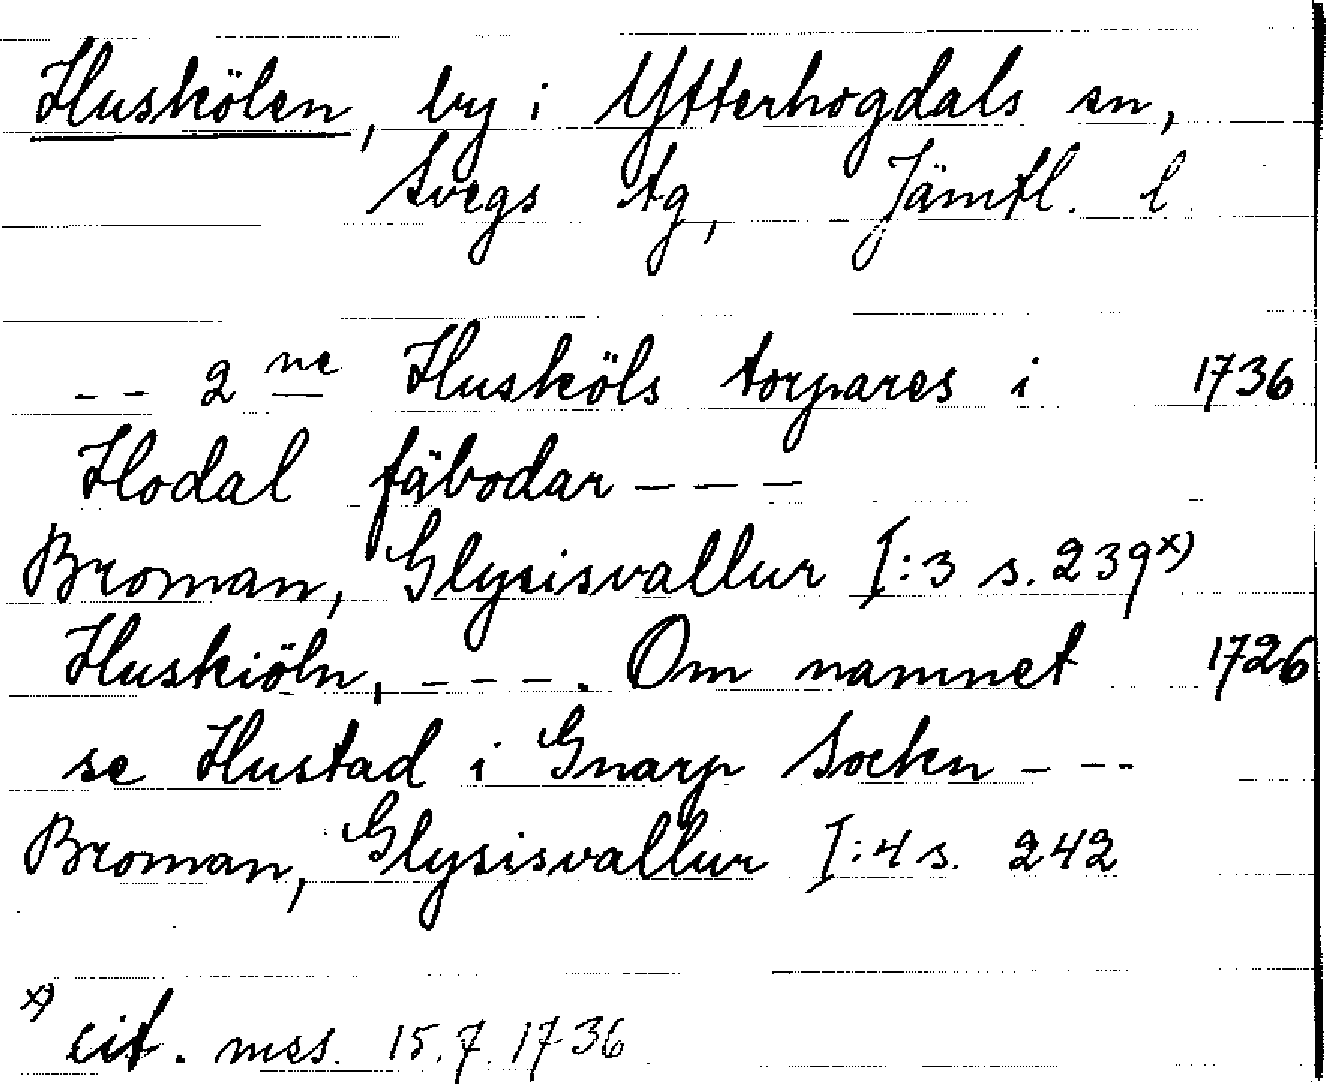 Huskölen, by i Ytterhogdals sn,
Svegs tg, Jämtl. l
-- 2 ne Husköls torpares i 1736
Hodal fäbodar ---
Broman, Glysisvallur I:3 s. 239x)
Huskiöln, ---. Om namnet 1726
se Hustad i Gnarp Sockn ---
Broman, Glysisvallur I:4 s. 242
x) cit. mss. 15.7.1736